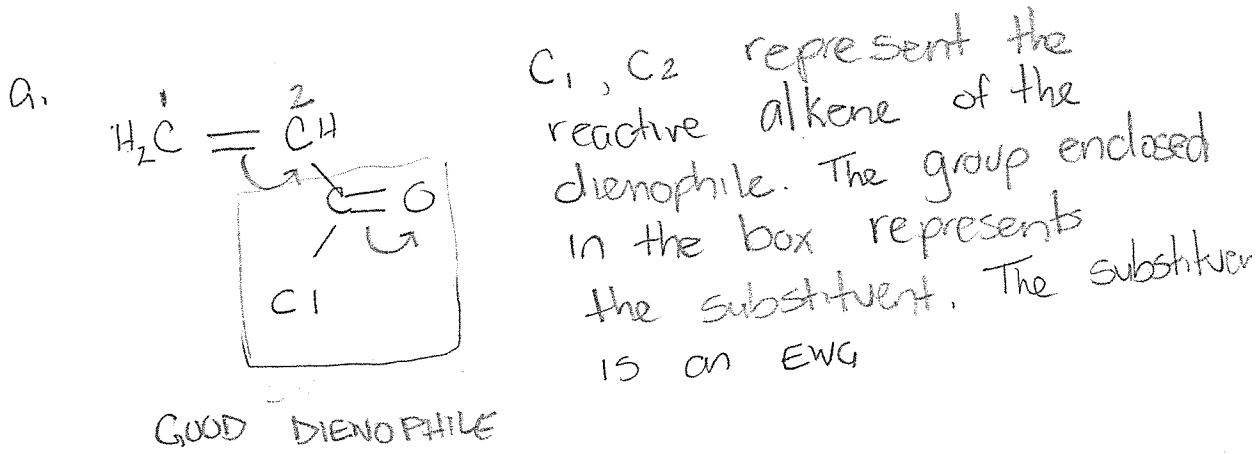 a.
1 2
H₂C = CH
C = O
Cl
GOOD DIENOPHILE
C₁, C₂ represent the
reactive alkene of the
dienophile. The group enclosed
in the box represents
the substituent. The substituen
is an EWG